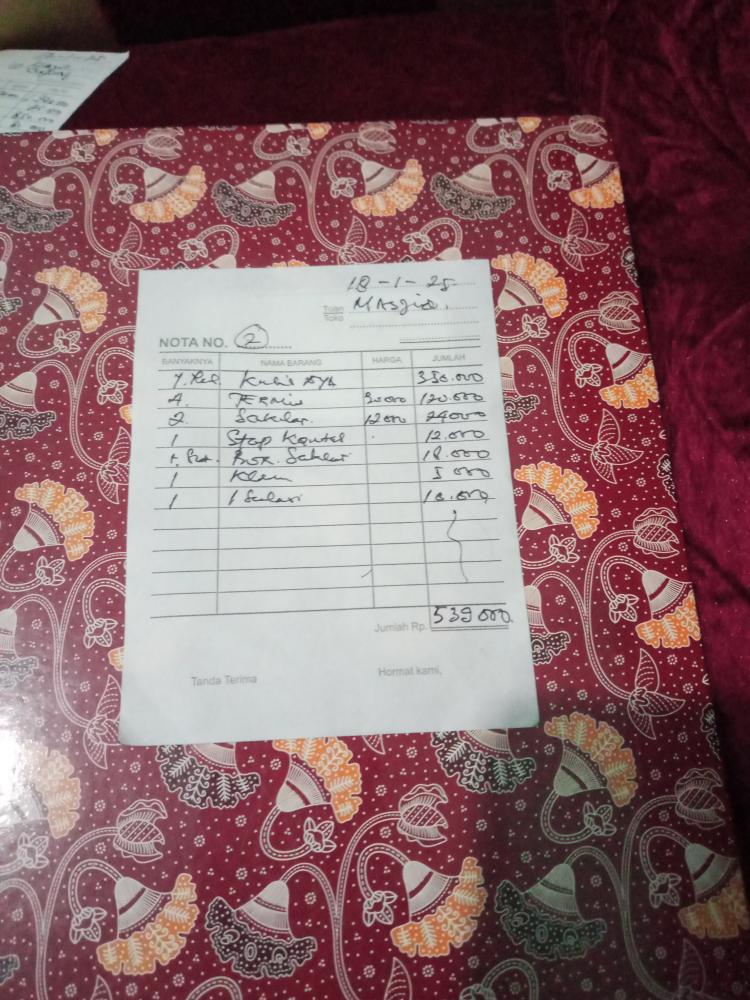 18-1-25
Tuan
Toko
Masjid.
NOTA NO. 2
BANYAKNYA NAMA BARANG HARGA JUMLAH
350.000
4. 30 000 120.000
2. Saklar. 12 000 24000
1 Stop Kontal 12.000
Box. Saklar 18.000
1 Klem 5 000
1 1 Solasi 10.000
Jumlah Rp. 539 000.
Tanda Terima Hormat kami,